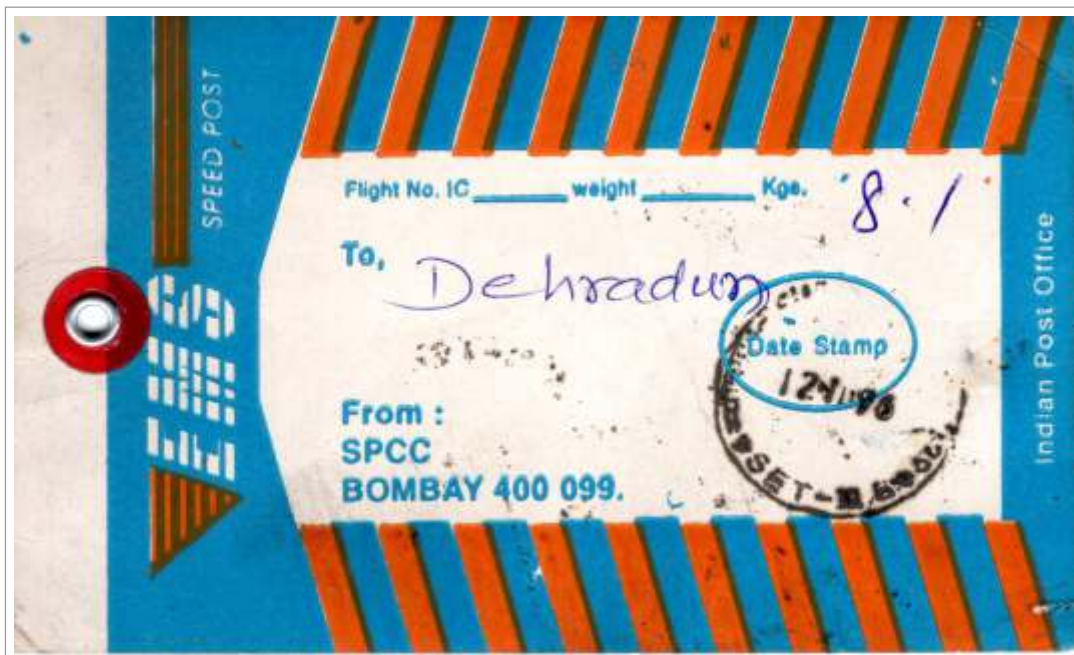 SPEED POST
EMS
Flight No. IC______ weight______ Kgs. 8.1
To, Dehradun
Date Stamp
SET-II
From :
SPCC
BOMBAY 400 099.
Indian Post Office